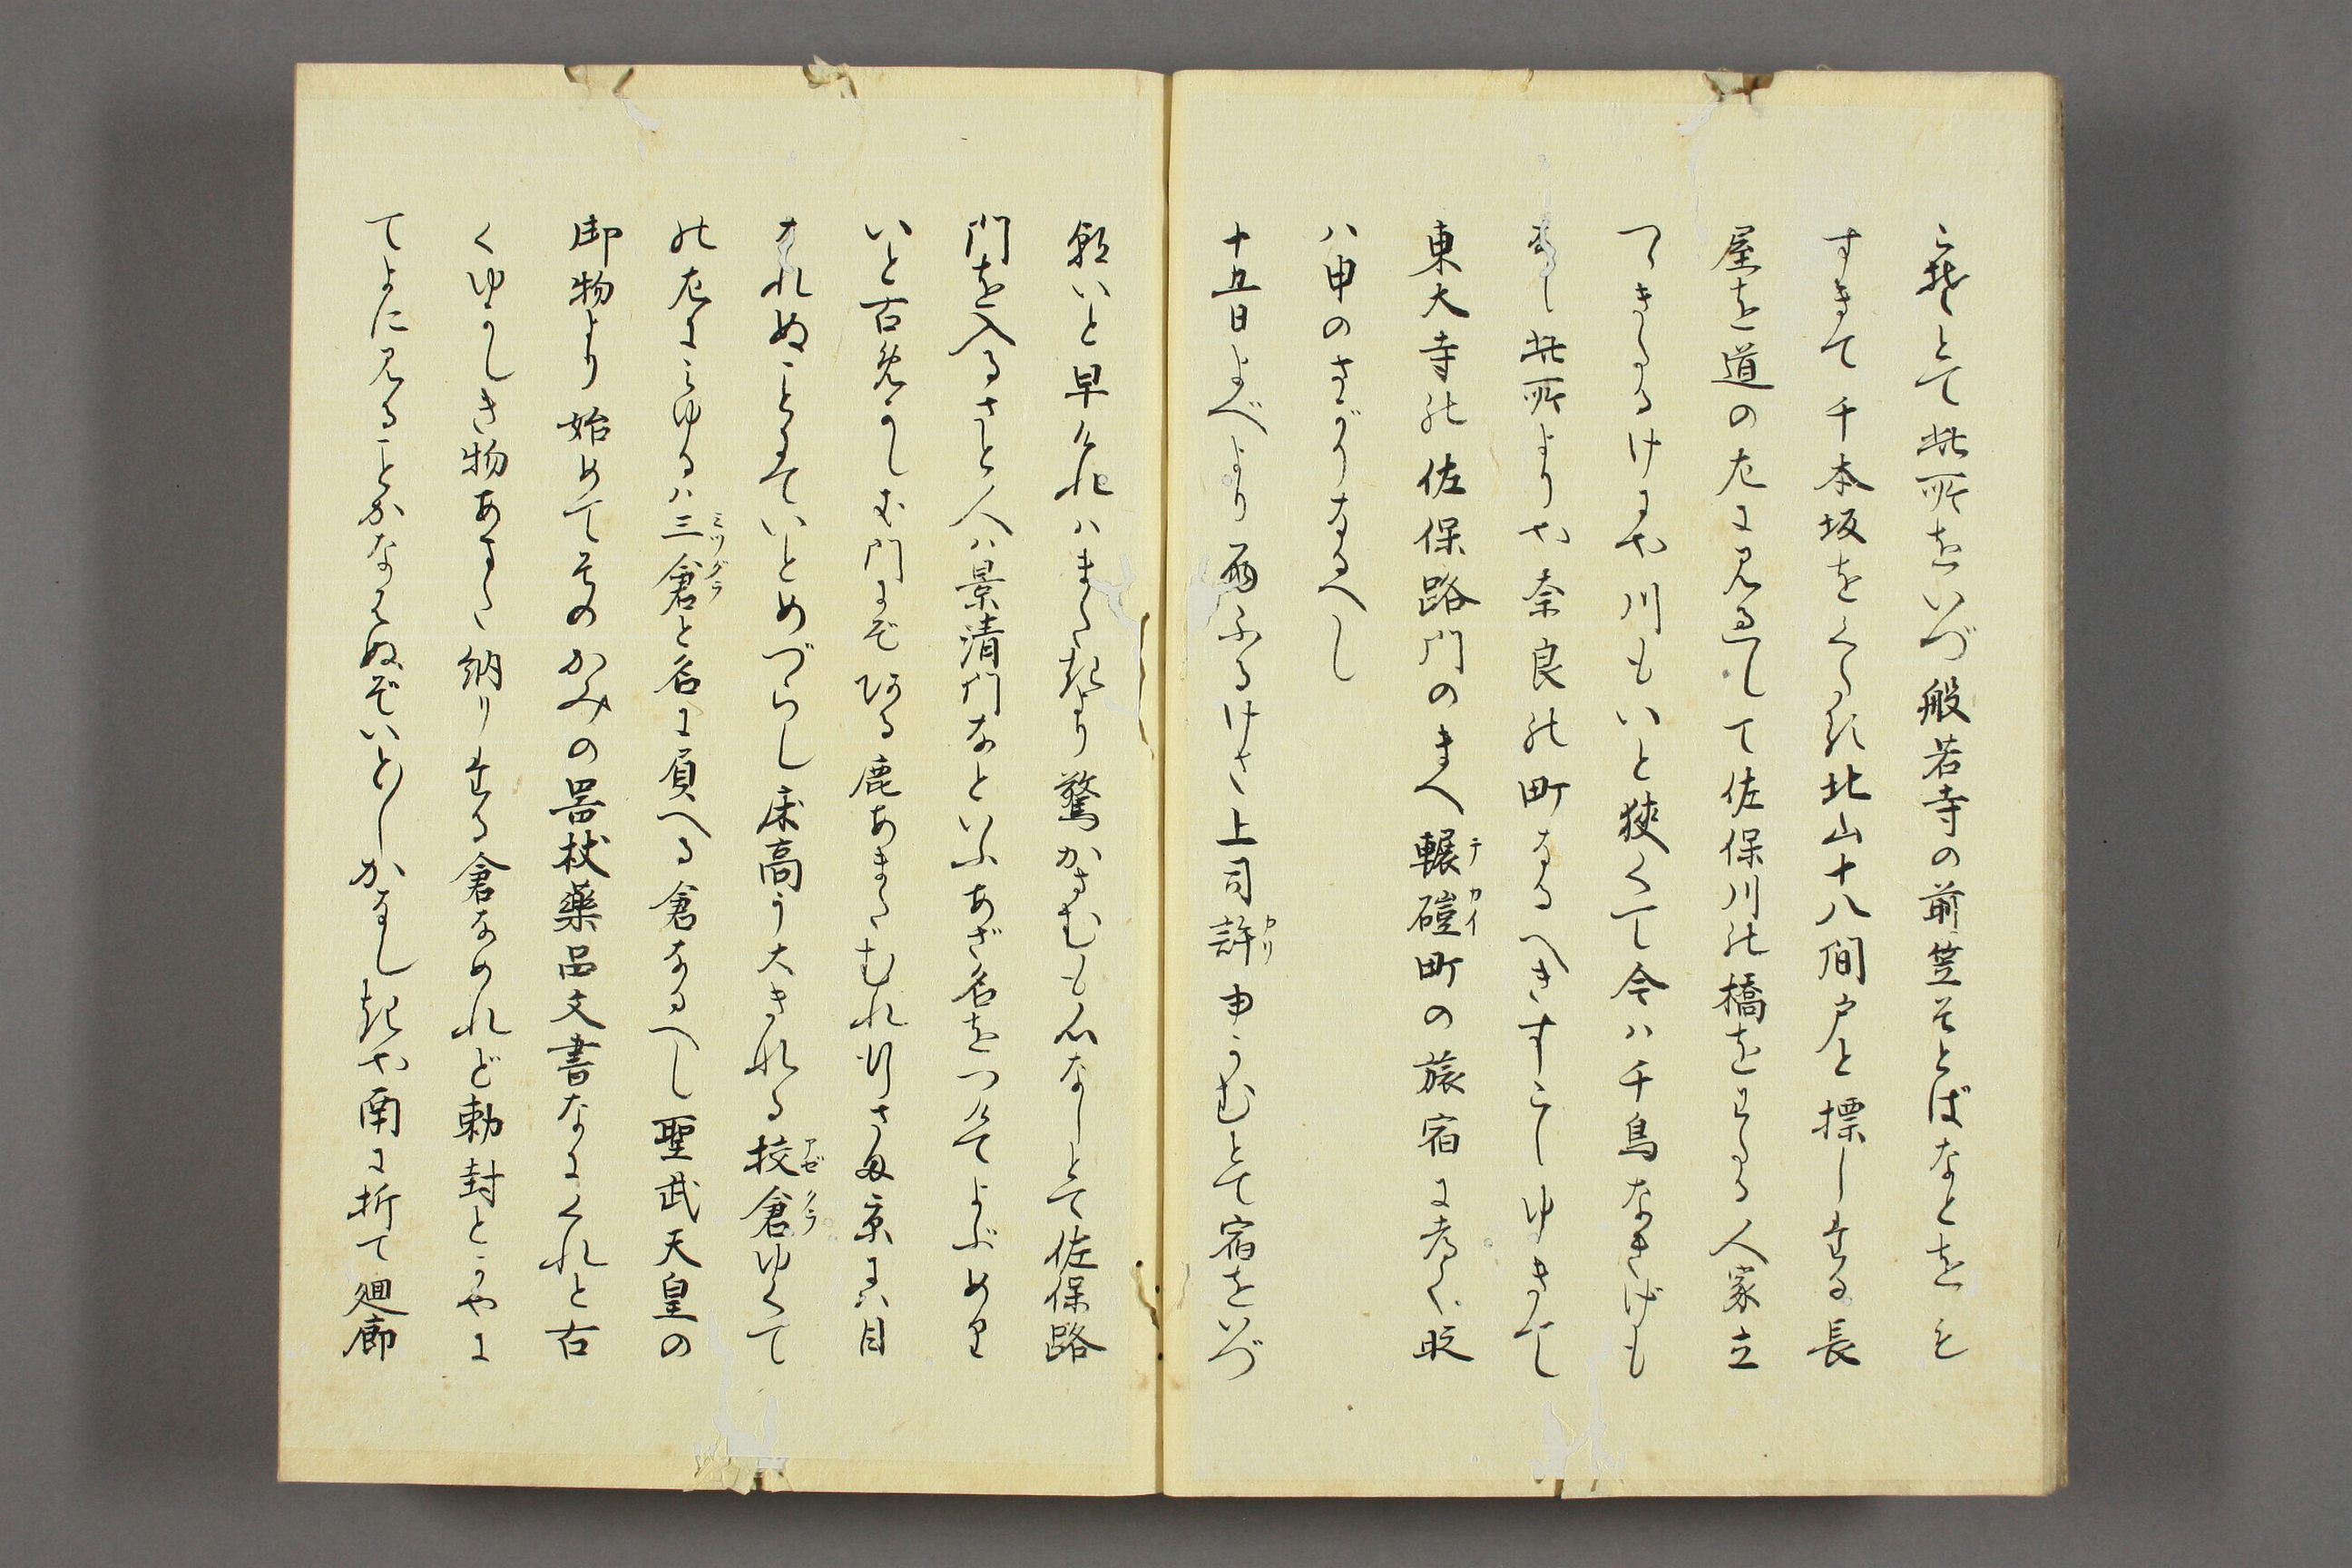 とて此所をいづ般若寺の前笠そとばなとをも
すきて千本坂をくたれは北山十八間戸と標し出る長
屋を道の左に見過して佐保川の橋をわたる人家立
つゝきたるけにや川もいと狭くて今ハ千鳥なきげも
なし此所よりや奈良の町なるへきすこしゆきて
東大寺の佐保路門のまへ輾磑町の旅宿に着く時
ハ申のさがりなるへし
十五日よべより雨ふるけさ上司許申うむとて宿をいづ
いと早けれハまた起より驚かさむも心なしとて佐保路
門を入るさと人ハ景清門なといふあざ名をつけてよぶめり
いと古めかしき門にぞある鹿あまたむれ行さま京にハ目
なれぬことにていとめづらし床高う大きなる校倉ゆくて
の左にみゆるハ三倉と名に負へる倉なるへし聖武天皇の
御物より始めてそのかみの器杖薬品文書なにくれと古
くゆかしき物あまた納り出る倉なめれど勅封とかやに
てよに見ることかなはぬぞいとくちをし起や南に折て廻廊